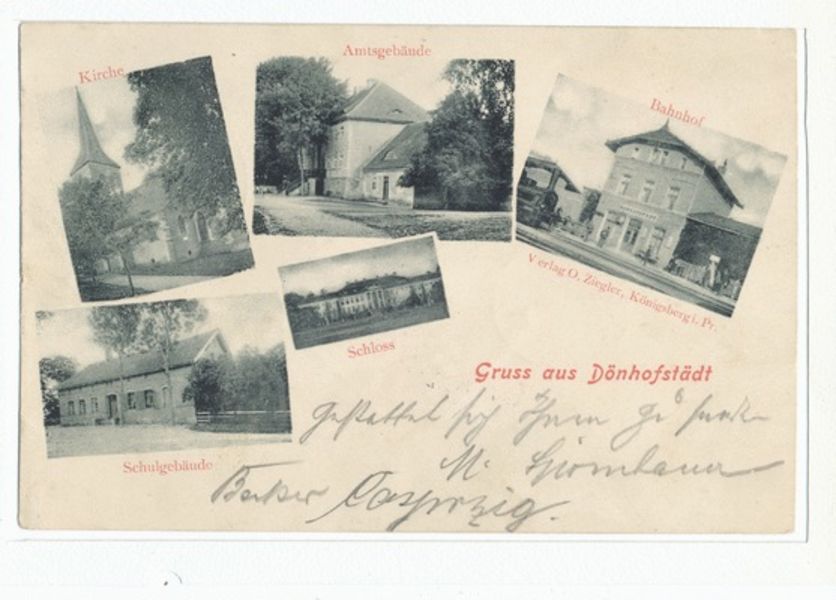 Kirche
Amtsgebäude
Bahnhof
Verlag O. Ziegler, Königsberg i. Pr.
Schloss
Schulgebäude
Gruss aus Dönhofstädt
Gestattet sich Ihnen zu
M.